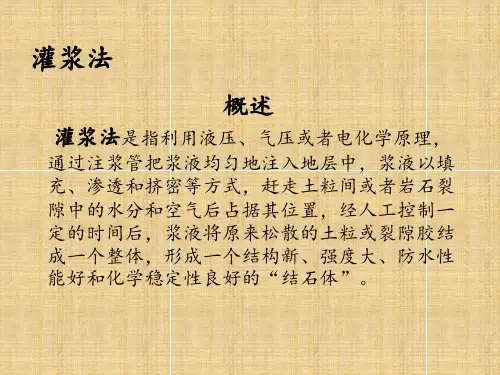 灌浆法
概述
灌浆法是指利用液压、气压或者电化学原理，
通过注浆管把浆液均匀地注入地层中，浆液以填
充、渗透和挤密等方式，赶走土粒间或者岩石裂
隙中的水分和空气后占据其位置，经人工控制一
定的时间后，浆液将原来松散的土粒或裂隙胶结
成一个整体，形成一个结构新、强度大、防水性
能好和化学稳定性良好的“结石体”。